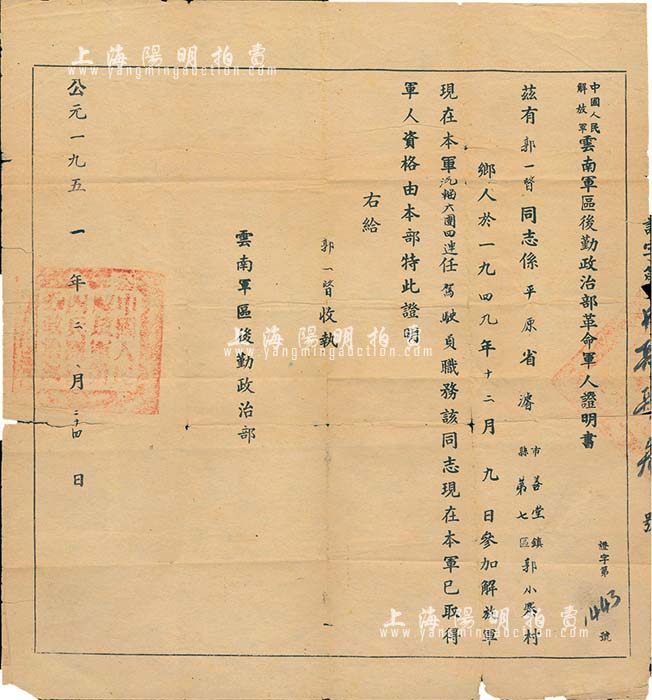 中國人民解放軍雲南軍區後勤政治部革命軍人證明書
證字第1443號
茲有郭一賢同志係平原省濬縣市第七區善堂鎮郭小寨村
鄉人於一九四九年十二月九日參加解放軍
現在本軍汽輜六團四連任駕駛員職務該同志現在本軍已取得
軍人資格由本部特此證明
右給
郭一賢收執
雲南軍區後勤政治部
公元一九五一年二月二十四日
上海陽明拍賣
www.yangmingauction.com
上海陽明拍賣
www.yangmingauction.com
上海陽明拍賣
www.yangmingauction.com